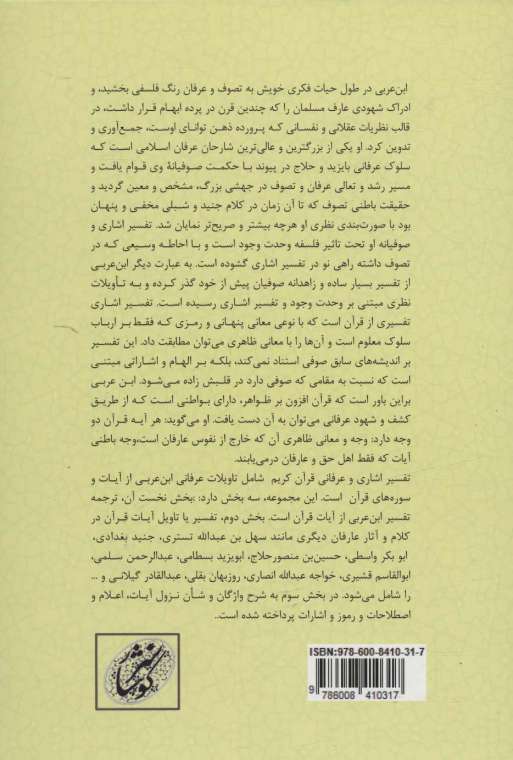 ابن‌عربی در طول حیات فکری خویش به تصوف و عرفان رنگ فلسفی بخشید، و
ادراک شهودی عارف مسلمان را که چندین قرن در پرده ابهام قرار داشت، در
قالب نظریات عقلانی و نفسانی کـه پـرورده ذهـن توانـای اوسـت، جمـع‌آوری و
تدوین کرد. او یکی از بزرگترین و عالی‌ترین شارحان عرفان اسلامـی اسـت کـه
سلوک عرفانی بایزید و حلاج در پیوند بـا حکمـت صـوفیانهٔ وی قـوام یافـت و
مسیر رشد و تعالی عرفان و تصوف در جهشی بزرگ، مشخص و معین گردید و
حقیقت باطنی تصوف که تا آن زمان در کلام جنید و شـبلی مخفـی و پنهـان
بود با صورت‌بندی نظری او هرچه بیشتر و صریح‌تر نمایان شد. تفسیر اشاری و
صوفیانه او تحت تاثیر فلسفه وحدت وجود اسـت و بـا احاطـه وسـیعی کـه در
تصوف داشته راهی نو در تفسیر اشاری گشوده است. به عبارت دیگر ابن‌عربـی
از تفسیر بسیار ساده و زاهدانه صوفیان پیش از خود گذر کـرده و بـه تـأویلات
نظری مبتنی بر وحدت وجود و تفسیر اشاری رسـیده اسـت. تفـسیر اشـاری
تفسیری از قرآن است که با نوعی معانی پنهـانی و رمـزی کـه فقـط بـر اربـاب
سلوک معلوم است و آن‌ها را با معانی ظاهری می‌توان مطابقت داد. این تفسیر
بر اندیشه‌های سابق صوفی استناد نمی‌کند، بلکـه بـر الهـام و اشـاراتی مبتنـی
است که نسبت به مقامی که صوفی دارد در قلبـش زاده مـی‌شـود. ابـن عربـی
براین باور است که قرآن افزون بر ظواهر، دارای بواطنـی اسـت کـه از طریـق
کشف و شهود عرفانی می‌توان به آن دست یافت. او می‌گوید: هر آیـه قـرآن دو
وجه دارد: وجه و معانی ظاهری آن که خارج از نفوس عارفان است،وجه باطنی
آیات که فقط اهل حق و عارفان درمی‌یابند.
تفسیر اشاری و عرفانی قرآن کریم شامل تاویلات عرفانی ابن‌عربـی از آیـات و
سوره‌های قرآن است. این مجموعه، سه بخش دارد: ،بخش نخست آن، ترجمه
تفسیر ابن‌عربی از آیات قرآن است. بخش دوم، تفسیر یا تاویل آیـات قـرآن در
کلام و آثار عارفان دیگری مانند سهل بن عبدالله تستری، جنید بغدادی،
ابو بکر واسطی، حسین‌بن منصورحلاج، ابویزید بسطامی، عبدالرحمن سـلمی،
ابوالقاسم قشیری، خواجه عبدالله انصاری، روزبهان بقلی، عبدالقادر گیلانـی و ...
را شامل می‌شود. در بخش سوم به شرح واژگان و شـأن نـزول آیـات، اعـلام و
اصطلاحات و رموز و اشارات پرداخته شده است..
ISBN:978-600-8410-31-7
9 786008 410317